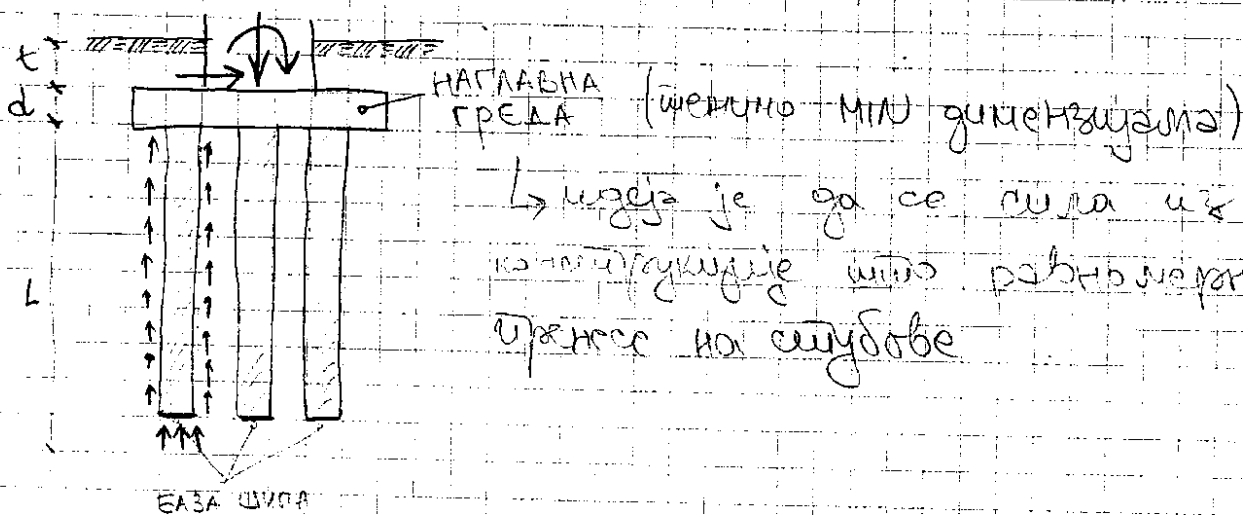 t
d
L
НАГЛАВНА
ГРЕДА (тежимо MIN димензијама)
↳ идеја је да се сила из
конструкције што равномерн
пренесе на стубове
БАЗА ШИПА